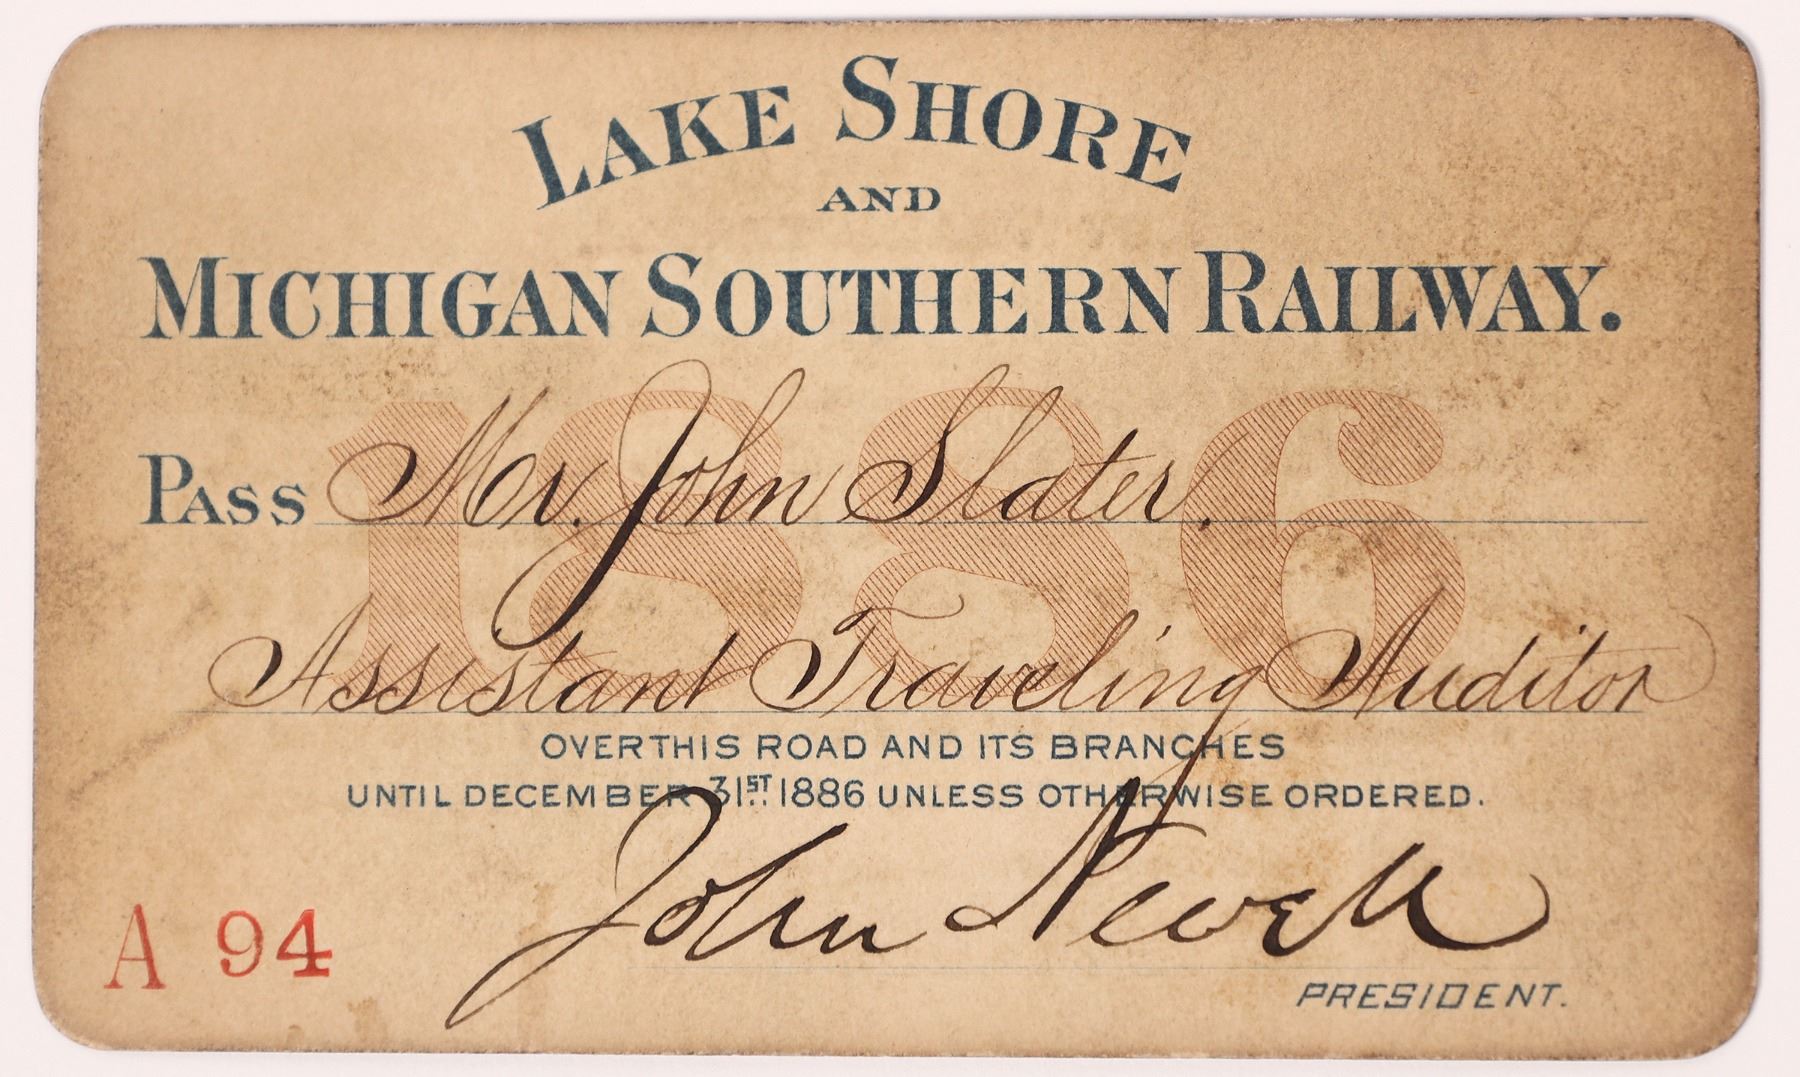 LAKE SHORE
AND
MICHIGAN SOUTHERN RAILWAY.
1886
PASS Mr. John Slater.
Assistant Traveling Auditor
OVER THIS ROAD AND ITS BRANCHES
UNTIL DECEMBER 31ST 1886 UNLESS OTHERWISE ORDERED.
John Newell
A 94
PRESIDENT.